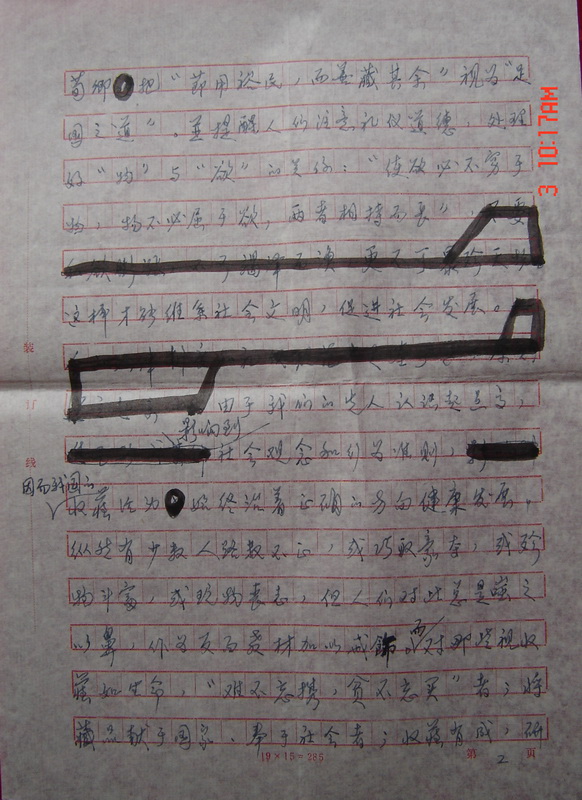 荀卿把“节用裕民，而善藏其余”视为“足
国之道”。并提醒人们注意礼仪道德，处理
好“物”与“欲”的关系：“使欲必不穷于
物，物不必屈于欲，两者相持而长”，不要
这样才能维系社会文明，促进社会发展。
由于我们的先人认识起点高，
影响到
社会观念和行为准则，
因而我国的
收藏行为始终沿着正确的方向健康发展。
纵然有少数人路数不正，或巧取豪夺，或珍
物斗富，或玩物丧志，但人们对此总是嗤之
以鼻，作为反面教材加以戒饰。而对那些视收
藏如生命，“难不忘携，贫不忘买”者；将
藏品献于国家、奉于社会者；收藏有成，研
19×15=285
第 2 页
装
订
线
3 10:17AM